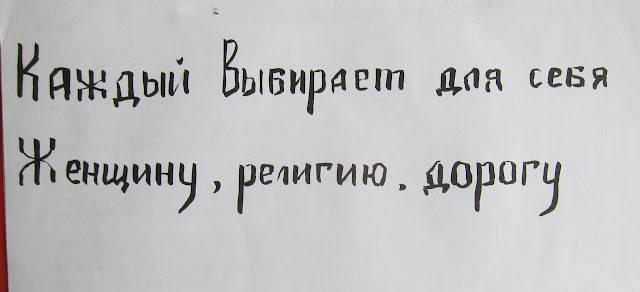 Каждый Выбирает для себя
Женщину, религию, дорогу